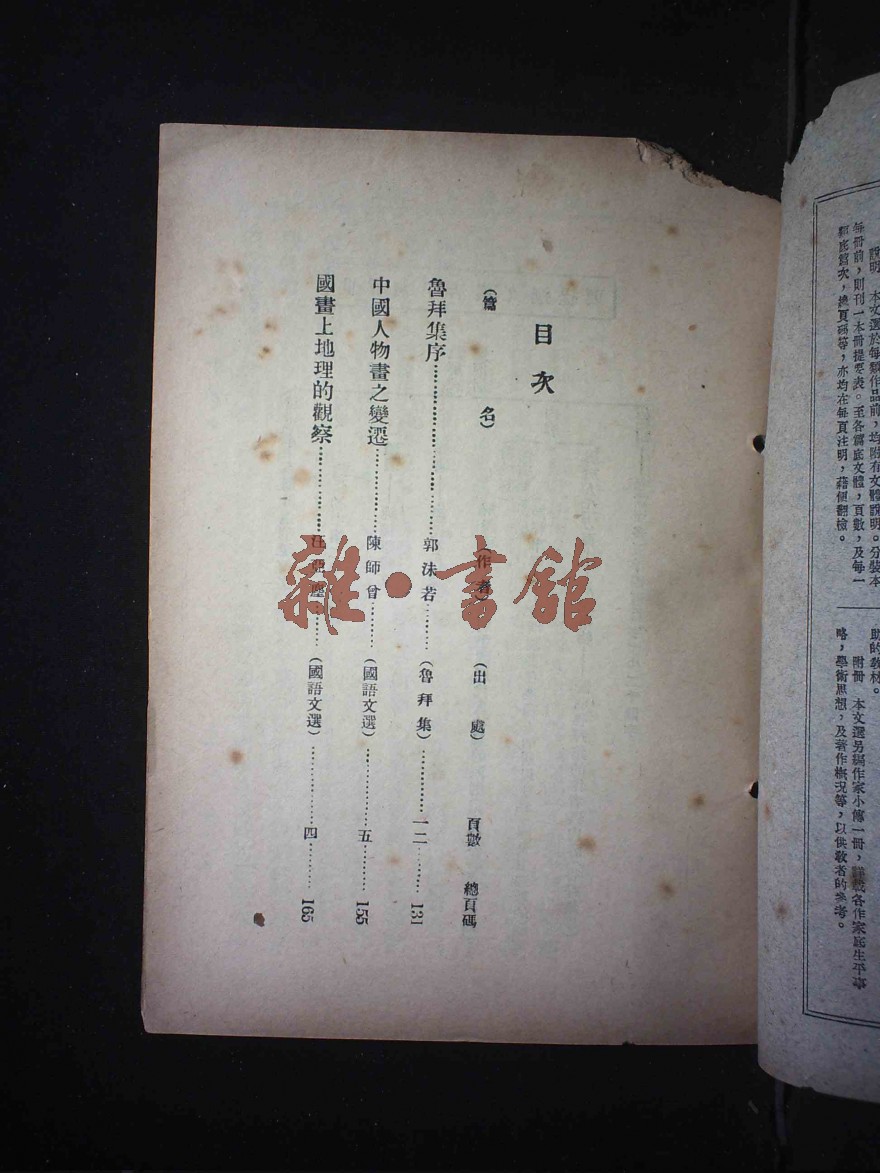 說明　本文選於每類作品前，均附有文體說明。分裝本
每冊前，則刊一本冊提要表。至各篇底文體，頁數，及每一
類底篇次，總頁碼等，亦均在每頁注明，藉便翻檢。
助的教材。
附冊　本文選另編作家小傳一冊，詳載各作家底生平事
略，學術思想，及著作概況等，以供教者的參考。
目次
（篇名）（作者）（出處）頁數　總頁碼
魯拜集序……郭沫若……（魯拜集）……一二……131
中國人物畫之變遷……陳師曾……（國語文選）……五……155
國畫上地理的觀察……汪亞塵……（國語文選）……四……165
雜·書館